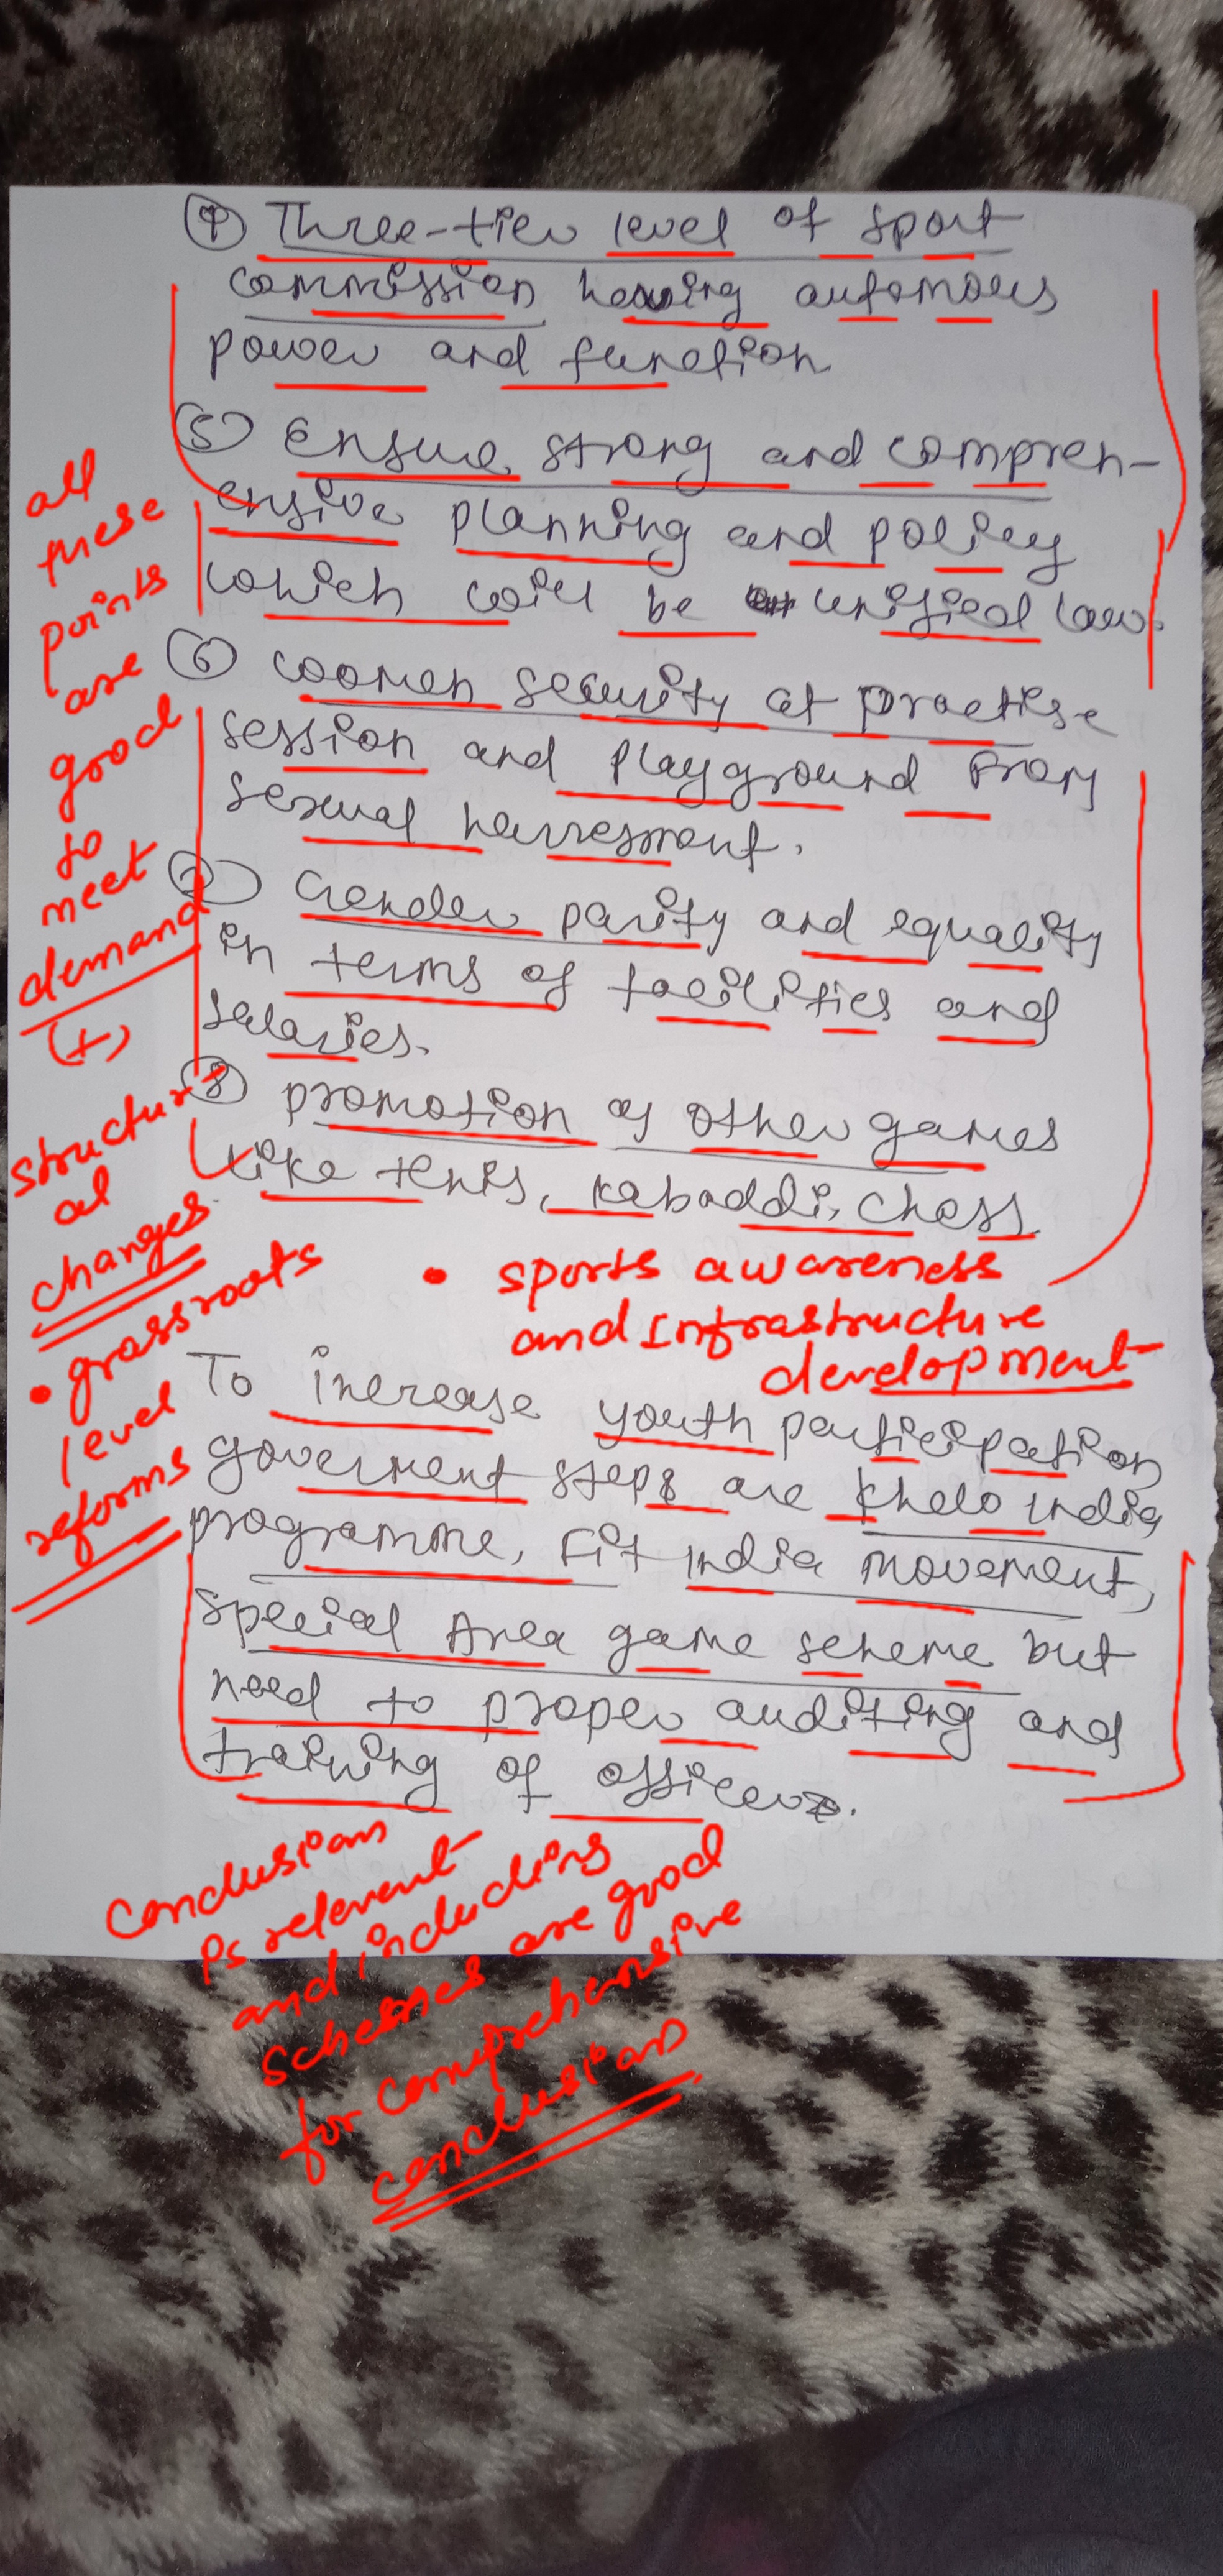 ④ Three-tier level of sport
commission having automous
power and function
⑤ Ensure strong and compreh-
ensive planning and policy
which will be unified law.
⑥ women security at practise
session and playground from
sexual harresment.
⑦ Gender parity and equality
in terms of facilities and
salaries.
⑧ promotion of other games
like tenis, kabaddi, chess
all
these
points
are
good
to
meet
demand
(+)
structur
al
changes
• grassroots
level
reforms
• sports awareness
and infrastructure
development
To increase youth participation
government steps are khelo india
programme, Fit india movement,
special Area game scheme but
need to proper auditing and
training of officers.
conclusion
is relevent
and including
schemes are good
for comprehensive
conclusion